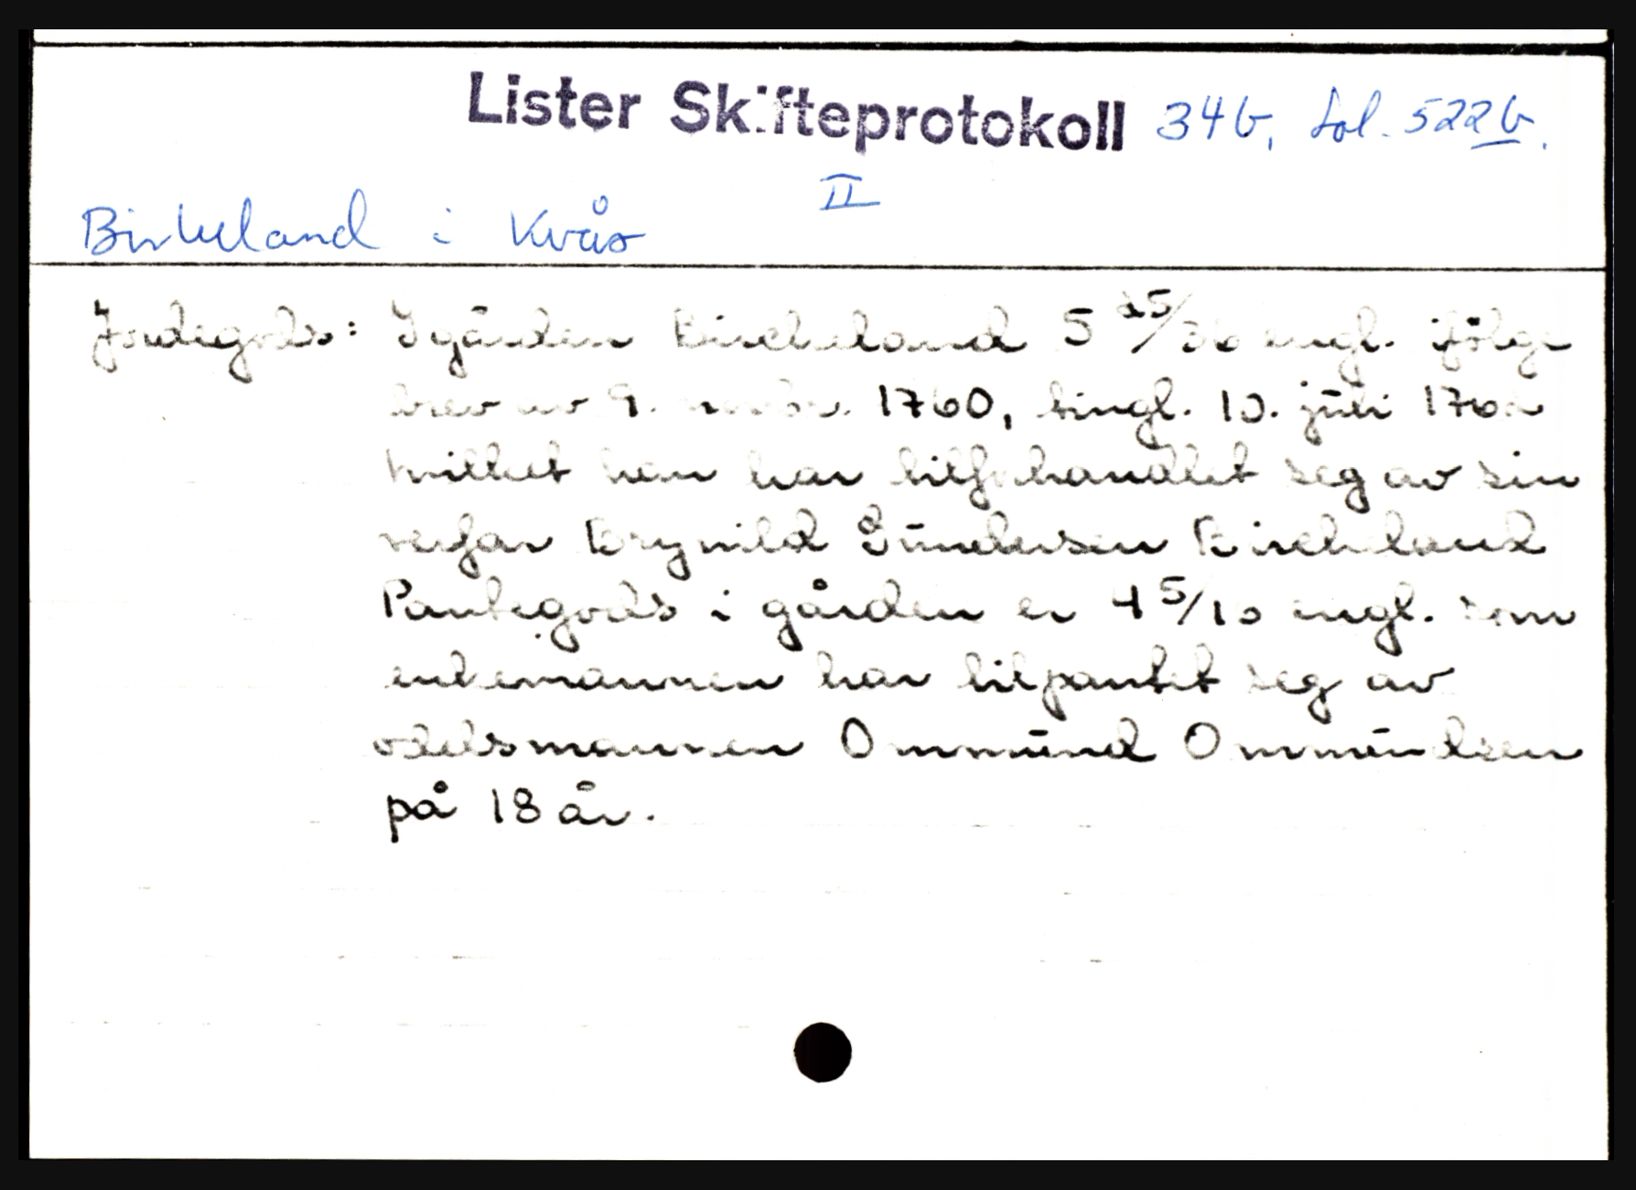 Lister Skifteprotokoll 34b, fol. 522b.
II
Birkeland i Kvås
Jordegods: I gården Bircheland 5 25/36 engl. ifölge
brev av 9. 1760, tingl. 10. juli
hvilket han har tilforhandlet seg av sin
verfar Brynild Gundersen Bircheland
Pantegods i gården er 4 5/10 engl. som
enkemannen har tilpantet seg av
odelsmannen Ommund Ommundsen
på 18 år.